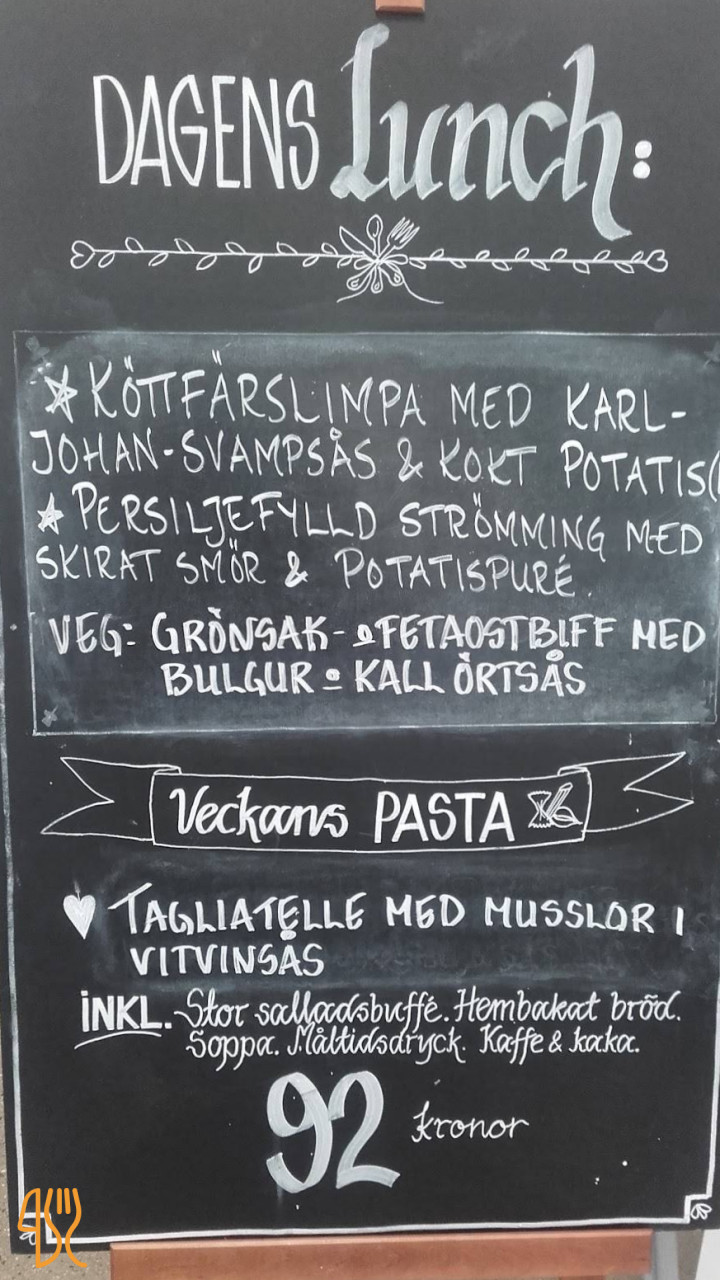 DAGENS Lunch:
☆ KÖTTFÄRSLIMPA MED KARL-
JOHAN-SVAMPSÅS & KOKT POTATIS(
☆ PERSILJEFYLLD STRÖMMING MED
SKIRAT SMÖR & POTATISPURÉ.
VEG: GRÖNSAK- o FETAOSTBIFF MED
BULGUR o KALL ÖRTSÅS
Veckans PASTA
♥ TAGLIATELLE MED MUSSLOR I
VITVINSÅS
INKL. Stor salladsbuffé. Hembakat bröd.
Soppa. Måltidsdryck. Kaffe & kaka.
92 kronor